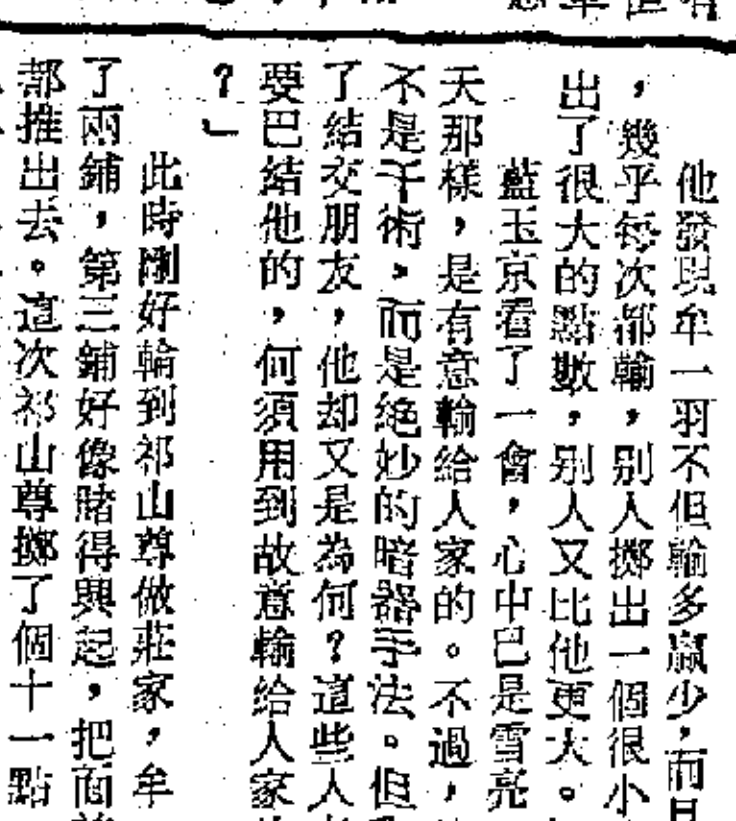 他發現牟一羽不但輸多贏少,而且
,幾乎每次都輸,別人擲出一個很小
出了很大的點數,別人又比他更大。
藍玉京看了一會,心中巳是雪亮
天那樣,是有意輸給人家的。不過,
不是千術,而是絕妙的暗器手法。但
了結交朋友,他却又是為何?這些人
要巴結他的,何須用到故意輸給人家
?」
此時剛好輪到祁山尊做莊家,牟
了兩鋪,第三鋪好像賭得興起,把面前
都推出去。這次祁山尊擲了個十一點